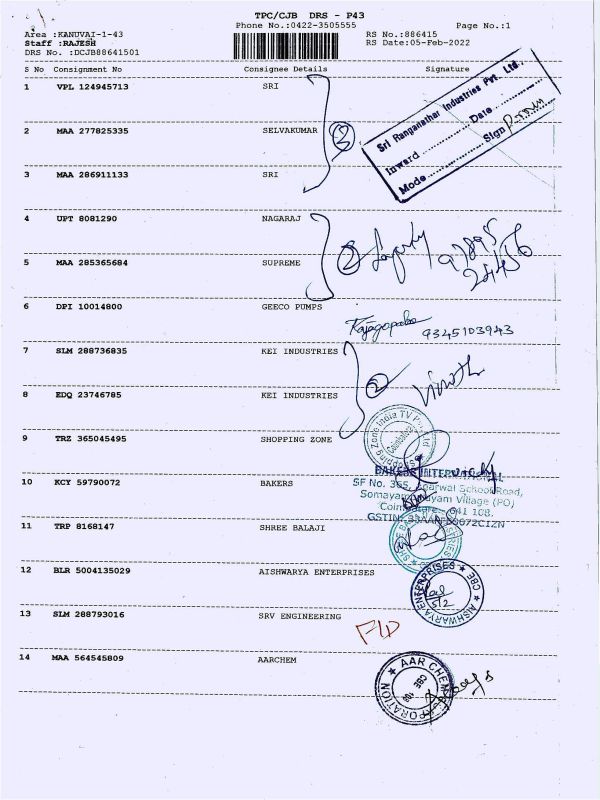 TPC/CJB DRS - P43
Phone No.:0422-3505555
Page No.:1
Area :KANUVAI-1-43
RS No.:886415
Staff :RAJESH
RS Date:05-Feb-2022
DRS No. :DCJB88641501
S No Consignment No Consignee Details Signature
1 VPL 124945713 SRI
Sri Ranganathar Industries Pvt. Ltd.,
Inward Date
Mode Sign
2 MAA 277825335 SELVAKUMAR
3
3 MAA 286911133 SRI
4 UPT 8081290 NAGARAJ
2
97895
24456
5 MAA 285365684 SUPREME
6 DPI 10014800 GEECO PUMPS
Rajagopalan 9345103943
7 SLM 288736835 KEI INDUSTRIES
2 Vinoth
8 EDQ 23746785 KEI INDUSTRIES
9 TRZ 365045495 SHOPPING ZONE
Shopping Zone India TV Pvt Ltd
Coimbatore
10 KCY 59790072 BAKERS
BAKERS INTERNATIONAL
SF No. 365, Agarwal School Road,
Somayampalayam Village (PO)
Coimbatore - 641 108.
11 TRP 8168147 SHREE BALAJI
12 BLR 5004135029 AISHWARYA ENTERPRISES
AISHWARYA ENTERPRISES CBE
5/2
13 SLM 288793016 SRV ENGINEERING
14 MAA 564545809 AARCHEM
AAR CHEM CORPORATION
CBE
108